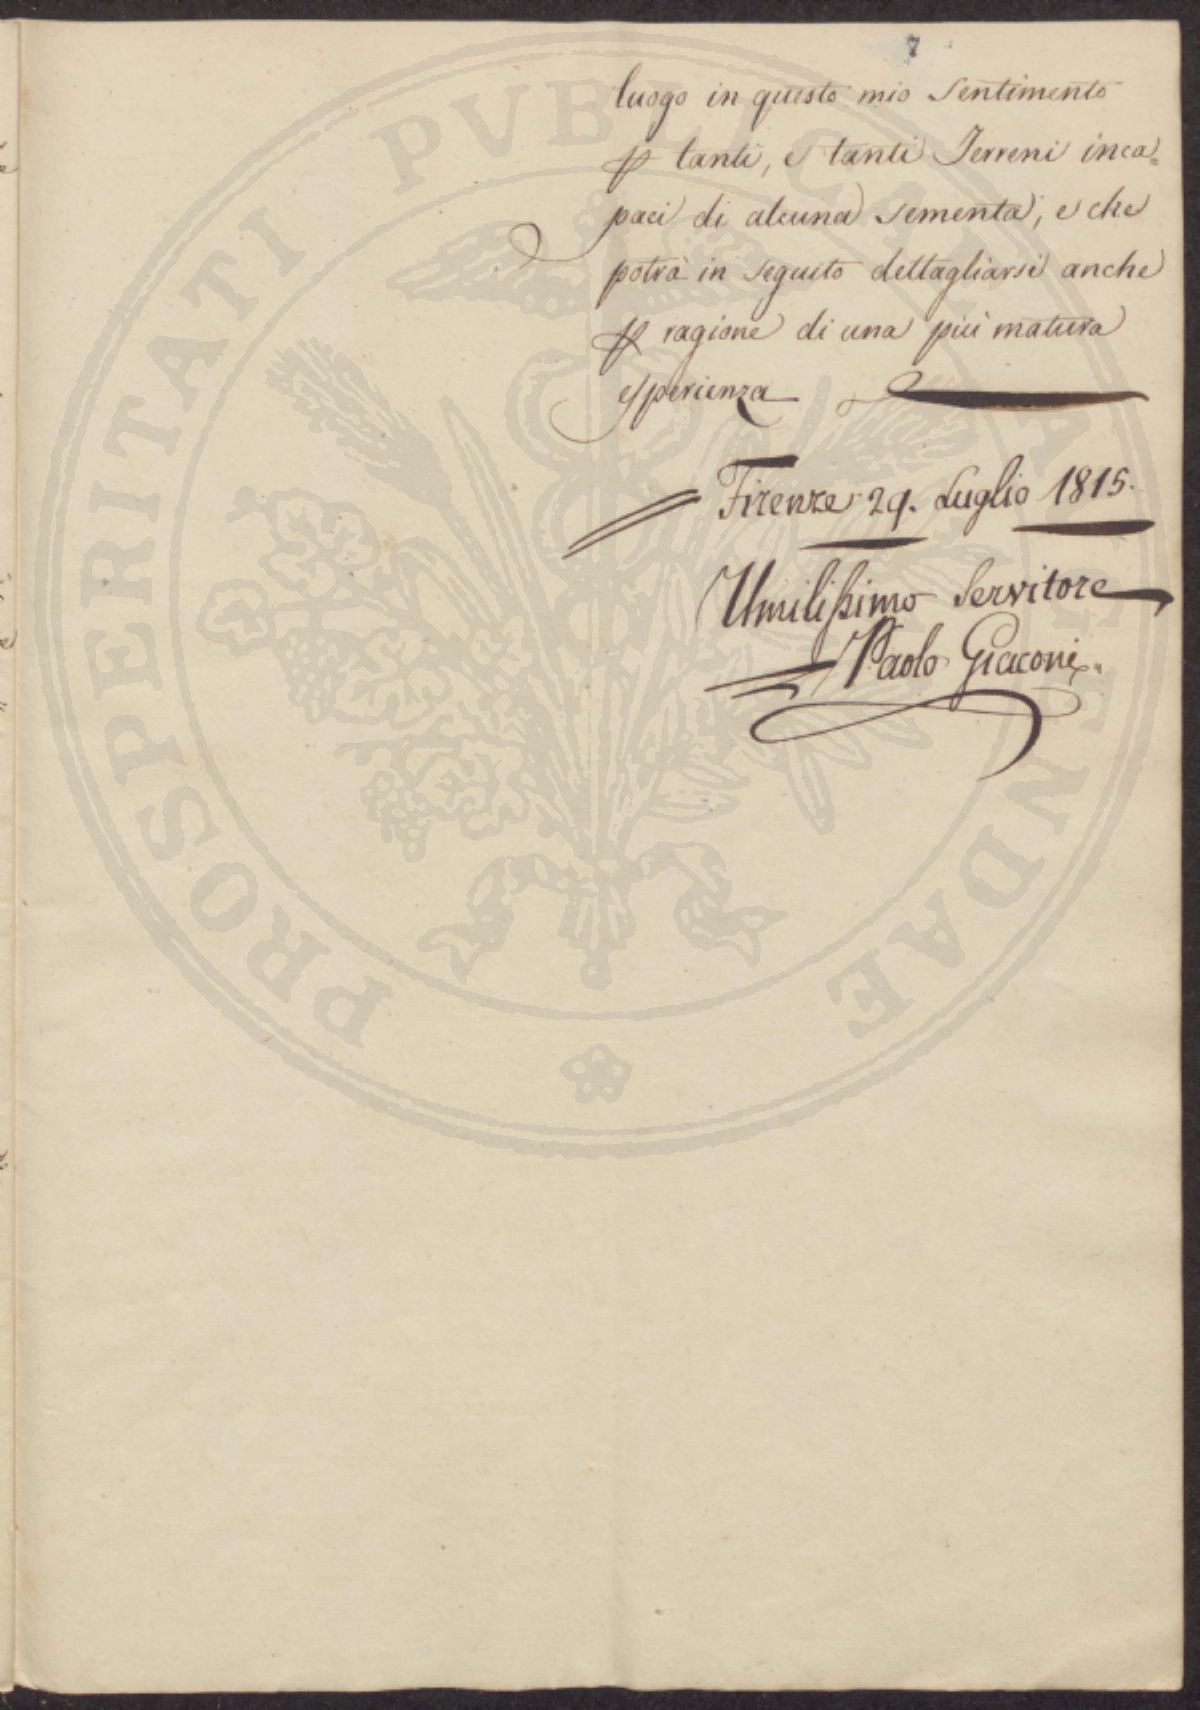 7
luogo in questo mio sentimento
p tanti, e tanti Terreni inca=
paci di alcuna sementa, e che
potrà in seguito dettagliarsi anche
p ragione di una più matura
esperienza
Firenze 29. Luglio 1815.
Umilissimo Servitore
Paolo Giaconi
PROSPERITATI PVBLICAE AVGENDAE